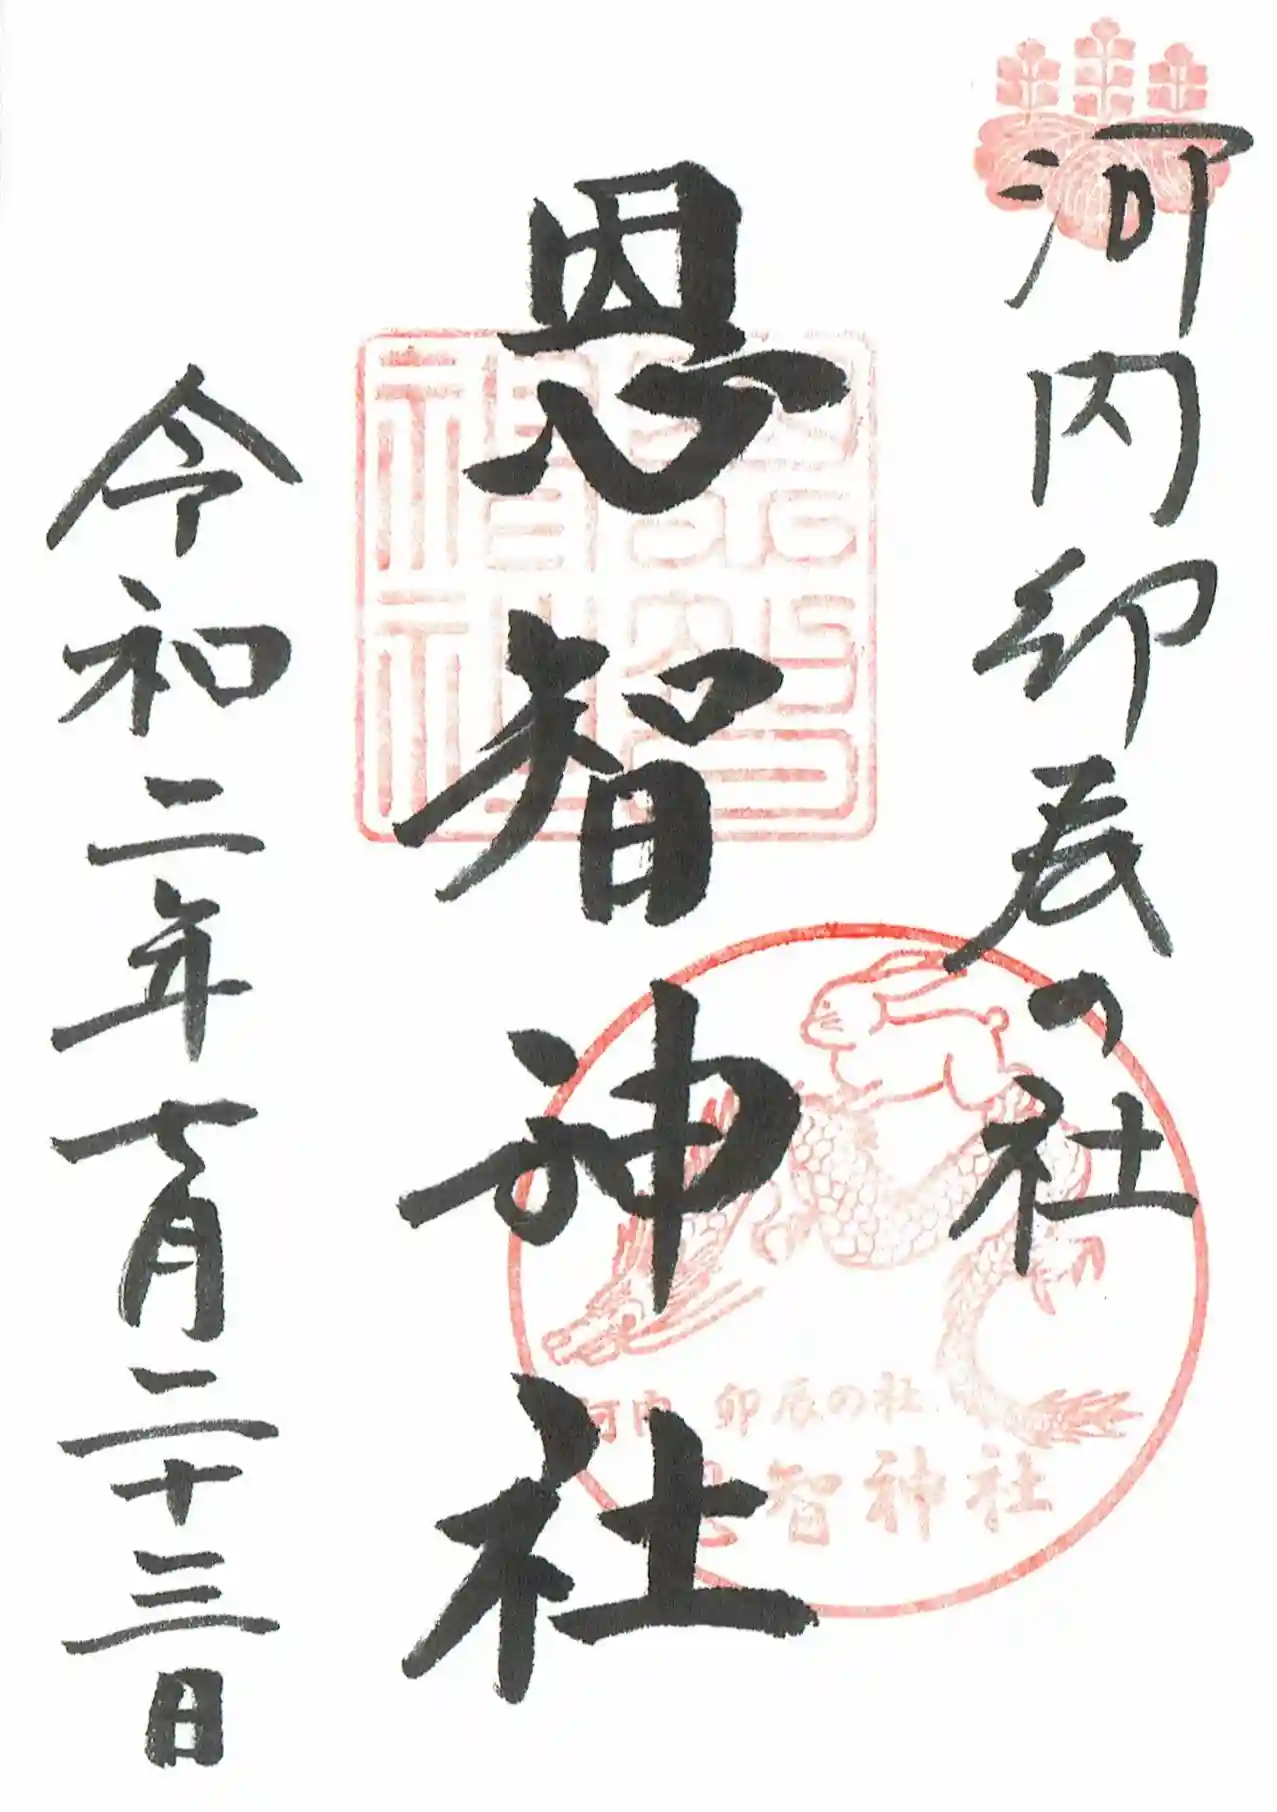 河内卯辰の社
恩智神社
令和二年七月二十三日
恩智神社
河内 卯辰の社
智神社